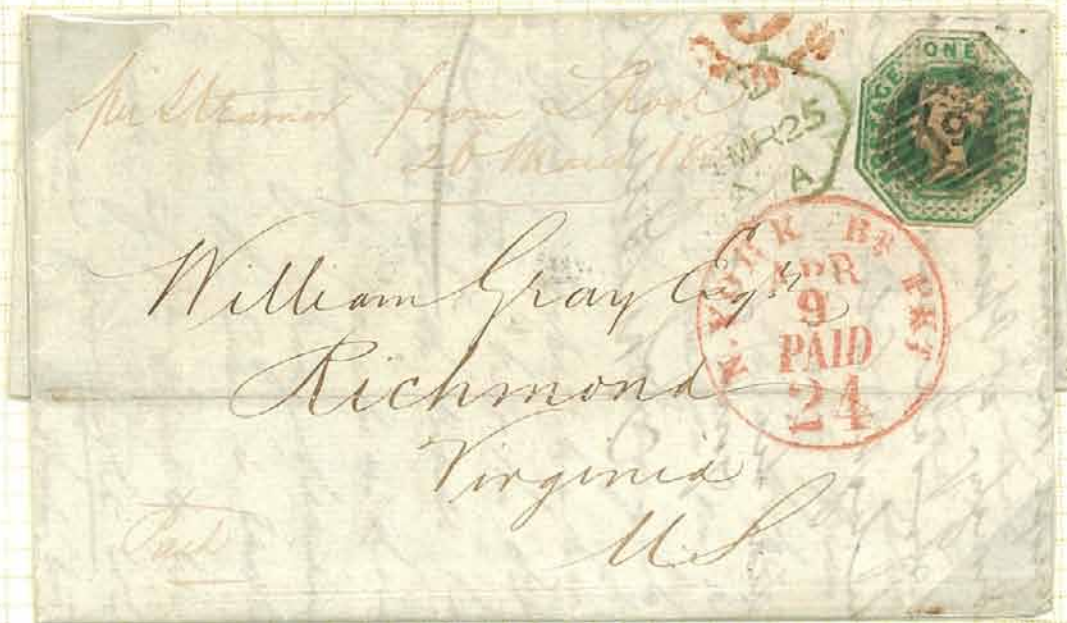 per Steamer from Lpool
26 March 18
POSTAGE ONE SHILLING
MR 25
A
N. YORK BR PKT
APR
9
PAID
24
William Gray Esqr
Richmond
Virginia
U.S.
Paid